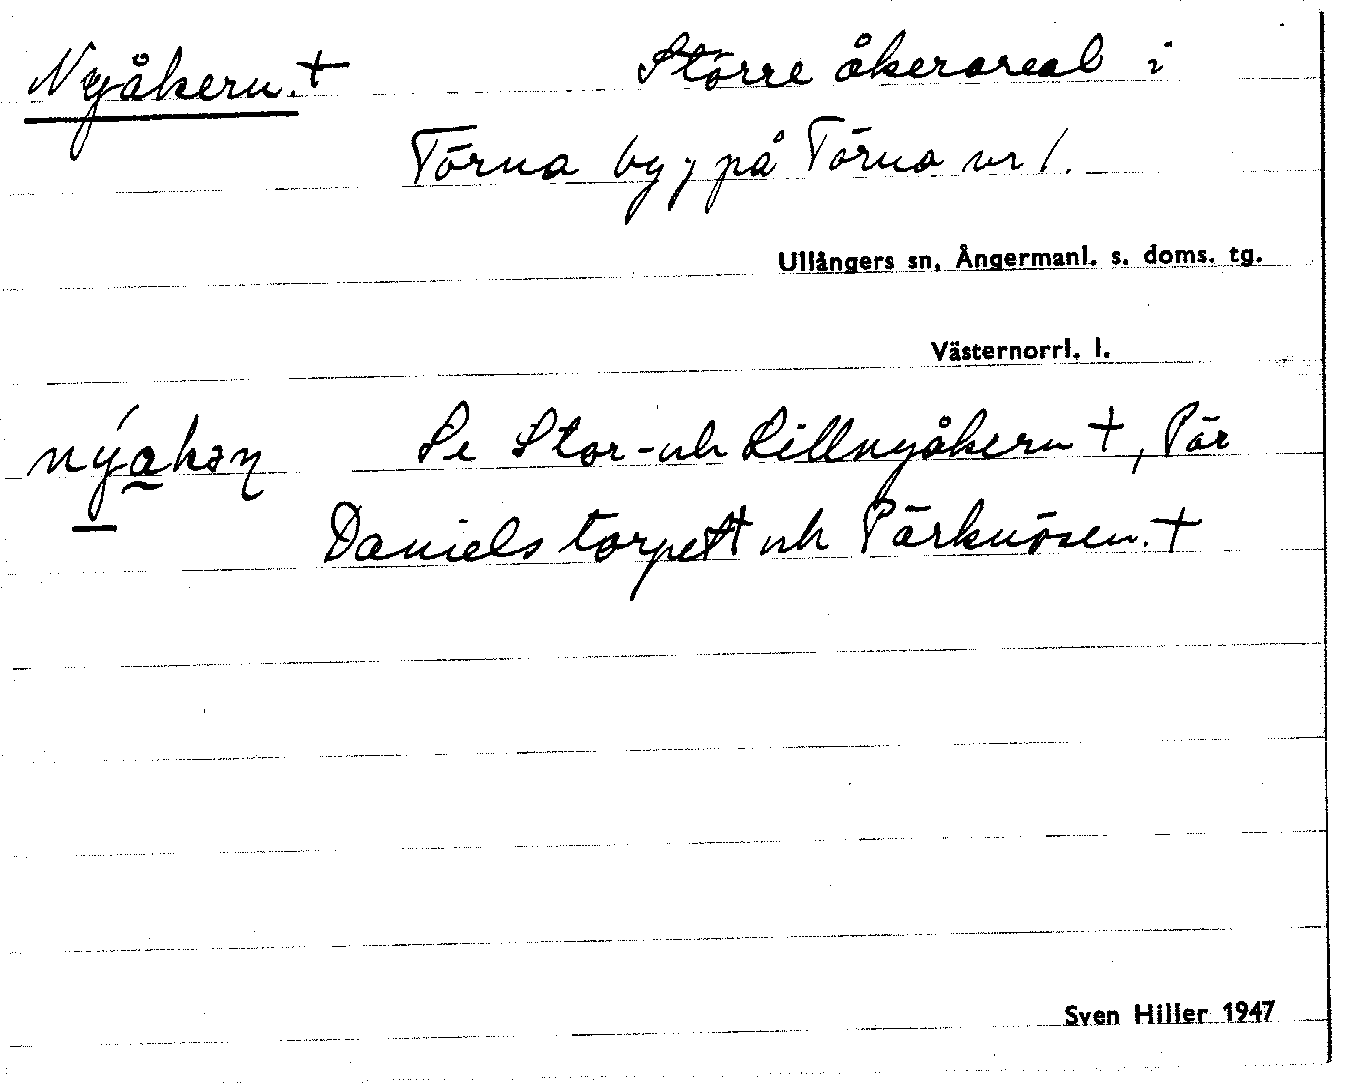 Nyåkern.+ Större åkerareal i
Törna by, på Törna nr 1.
Ullångers sn, Ångermanl. s. doms. tg.
Västernorrl. l.
Se Stor- och Lillnyåkern +, Pär
Daniels torpet+ och Pärknösen.+
Sven Hiller 1947